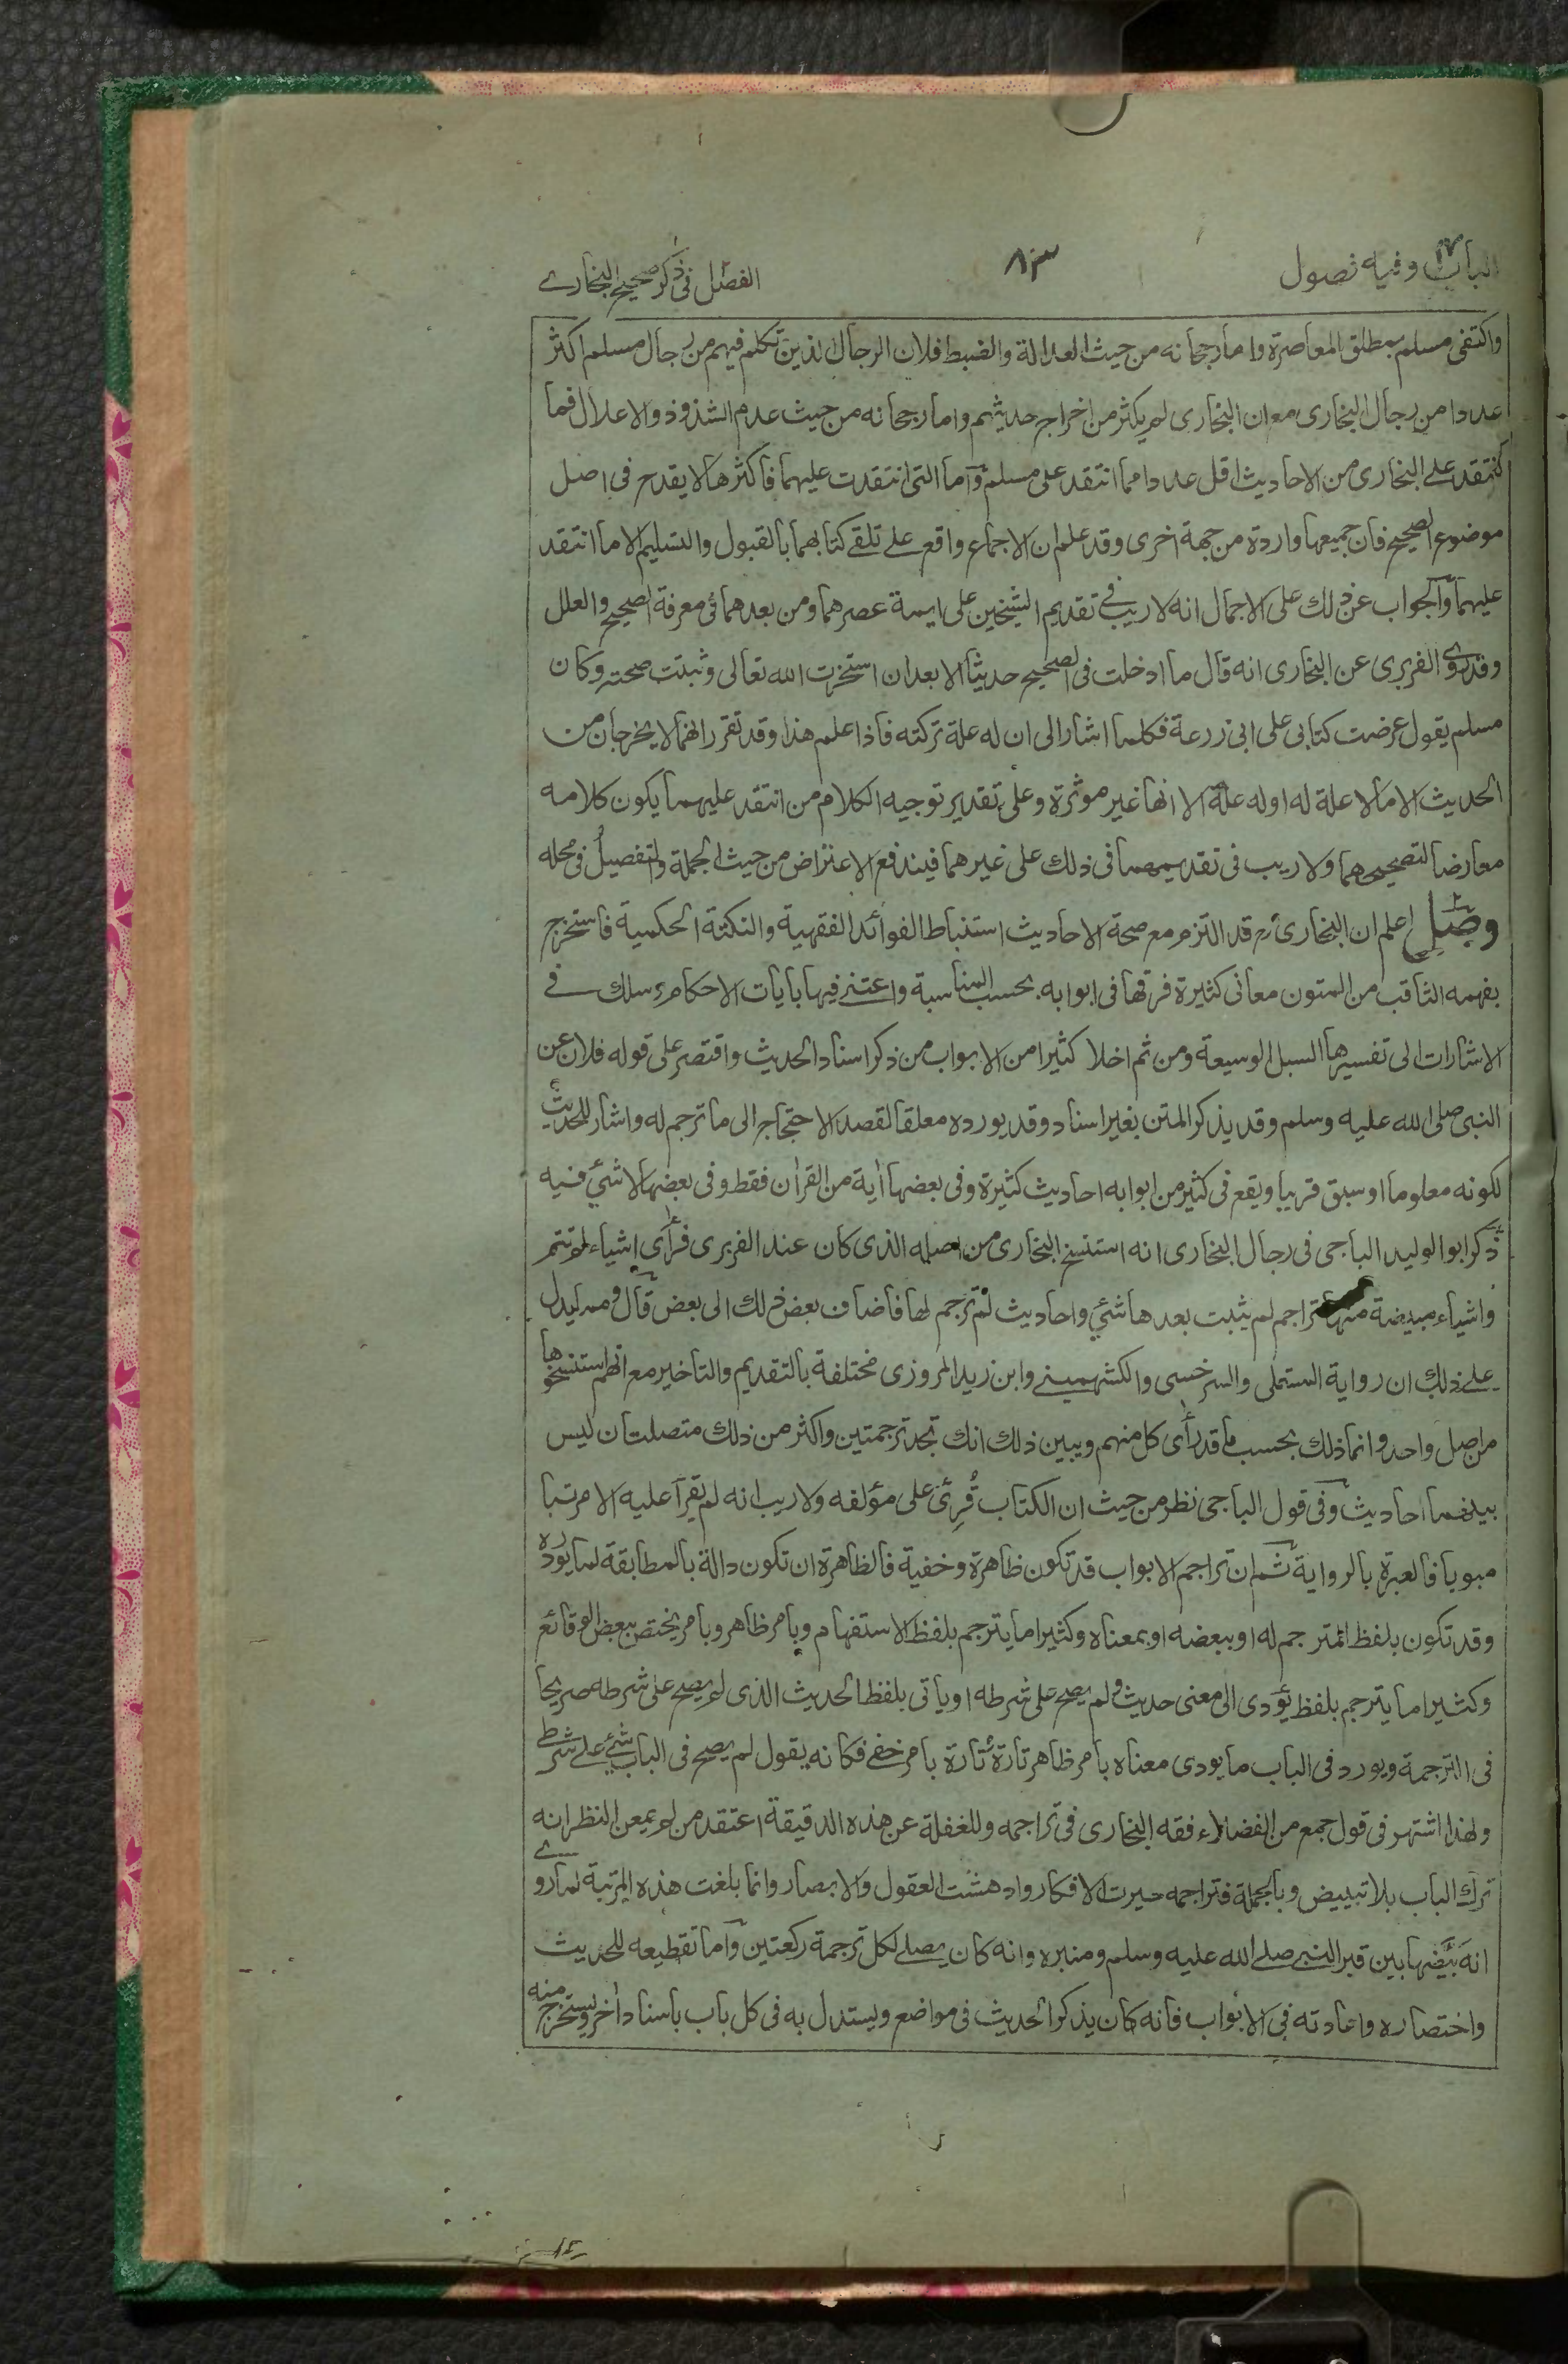 الباب وفيه فصول
٨٣
الفصل فى ذكر صحيح البخارے
واكتفى مسلم بمطلق المعاصرة واما رجحانه من حيث العدالة والضبط فلان الرجال الذين تكلم فيهم من رجال مسلم اكثر
عددا من رجال البخارى مع ان البخارى لم يكثر من اخراج حديثهم واما رجحانه من حيث عدم الشذوذ والاعلال فما
انتقد علے البخارى من الاحاديث اقل عددا مما انتقد على مسلم وآما التى انتقدت عليهما فاكثرها لا يقدح فى اصل
موضوع الصحيح فان جميعها واردة من جهة اخرى وقد علم ان الاجماع واقع علے تلقے كتابهما بالقبول والتسليم الا ما انتقد
عليهما وآلجواب عن ذلك على الاجمال انه لا ريب فے تقديم الشيخين على ايمة عصرهما ومن بعدهما فى معرفة الصحيح والعلل
وقد روے الفربرى عن البخارى انه قال ما ادخلت فى الصحيح حديثا الا بعد ان استخرت الله تعالى وثبتت صحته وكان
مسلم يقول عرضت كتابى على ابى زرعة فكلما اشار الى ان له علة تركته فاذا علم هذا وقد تقرر انهما لا يخرجان من
الحديث الا ما لا علة له او له علة الا انها غير موثرة وعلى تقدير توجيه الكلام من انتقد عليهما يكون كلامه
معارضا لتصحيحهما ولا ريب فى تقديمهما فى ذلك على غيرهما فيندفع الاعتراض من حيث الجملة والتفصيل فى محله
وصل اعلم ان البخارى رح قد التزم مع صحة الاحاديث استنباط الفوائد الفقهية والنكتة الحكمية فاستخرج
بفهمه الثاقب من المتون معانى كثيرة فرقها فى ابوابه بحسب المناسبة واعتنے فيها بايات الاحكام وسلك فے
الاشارات الى تفسيرها السبل الوسيعة ومن ثم اخلا كثيرا من الابواب من ذكر اسناد الحديث واقتصر على قوله فلان عن
النبى صلى الله عليه وسلم وقد يذكر المتن بغير اسناد وقد يورده معلقا لقصد الاحتجاج الى ما ترجم له واشار للحديث
لكونه معلوما او سبق قريبا ويقع فى كثير من ابوابه احاديث كثيرة وفى بعضها اية من القران فقط وفى بعضها لا شئ فيه
ذكر ابو الوليد الباجى فى رجال البخارى انه استنسخ البخارى من اصله الذى كان عند الفربرى فرأى اشياء لم تتم
واشياء مبيضة منها تراجم لم يثبت بعدها شئ واحاديث لم ترجم لها فاضاف بعض ذلك الى بعض قال ومما يدل
علے ذلك ان رواية المستملى والسرخسى والكشميهنے وابن زيد المروزى مختلفة بالتقديم والتاخير مع انهم استنسخوها
من اصل واحد وانما ذلك بحسب ما قد رأى كل منهم ويبين ذلك انك تجد ترجمتين واكثر من ذلك متصلتان ليس
بينهما احاديث وفى قول الباجى نظر من حيث ان الكتاب قُرِئ على مؤلفه ولا ريب انه لم يقرأ عليه الا مرتبا
مبوبا فالعبرة بالرواية ثم ان تراجم الابواب قد تكون ظاهرة وخفية فالظاهرة ان تكون دالة بالمطابقة لما يورده
وقد تكون بلفظ المترجم له او ببعضه او بمعناه وكثيرا ما يترجم بلفظ الاستفهام وبامر ظاهر وبامر يختص ببعض الوقائع
وكثيرا ما يترجم بلفظ يؤدى الى معنى حديث ولم يصح على شرطه او ياتى بلفظ الحديث الذى لم يصح على شرطه صريحا
فى الترجمة ويورد فى الباب ما يودى معناه بامر ظاهر تارة تارة بامر خفے فكانه يقول لم يصح فى الباب شئ علے شرطے
ولهذا اشتهر فى قول جمع من الفضلاء فقه البخارى فى تراجمه وللغفلة عن هذه الدقيقة اعتقد من لم يمعن النظر انه
ترك الباب بلا تبييض وبالجملة فتراجمه حيرت الافكار وادهشت العقول والابصار وانما بلغت هذه المرتبة لما روے
انه بَيَّضها بين قبر النبے صلے الله عليه وسلم ومنبره وانه كان يصلے لكل ترجمة ركعتين وآما تقطيعه للحديث
واختصاره واعادته فى الابواب فانه كان يذكر الحديث فى مواضع ويستدل به فى كل باب باسناد اخر ويستخرج منه